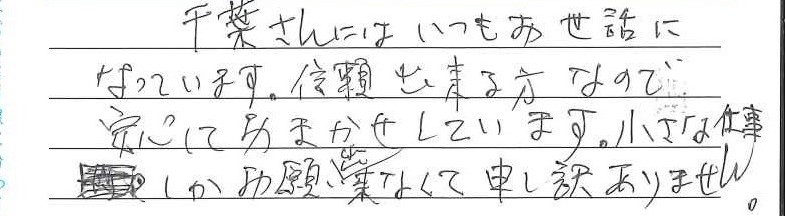 千葉さんにはいつもお世話に
なっています。信頼出来る方なので
安心しておまかせしています。小さな仕事
しかお願い出来なくて申し訳ありません。